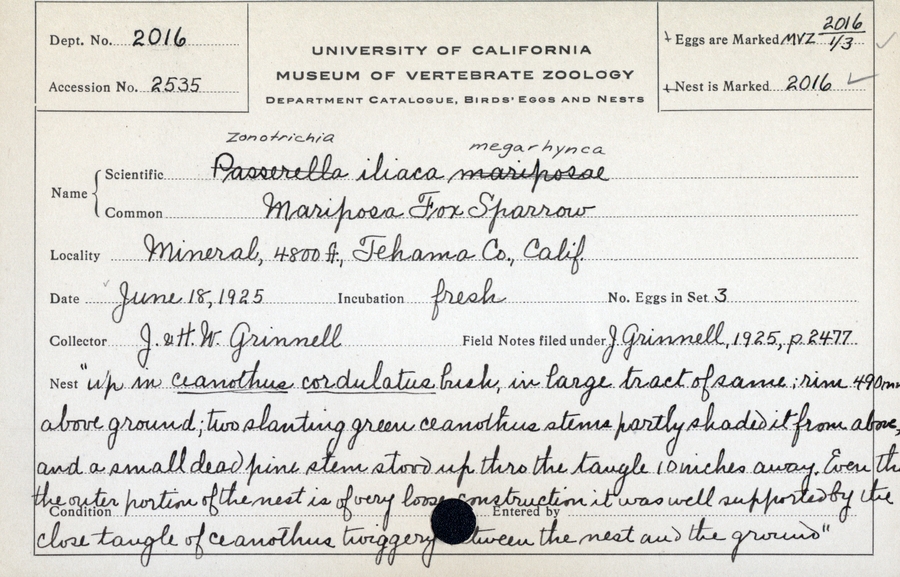 Dept. No. 2016
Accession No. 2535
UNIVERSITY OF CALIFORNIA
MUSEUM OF VERTEBRATE ZOOLOGY
DEPARTMENT CATALOGUE, BIRDS' EGGS AND NESTS
Eggs are Marked MVZ 2016 1/3
Nest is Marked 2016
Zonotrichia megarhynca
Name
Scientific Passerella iliaca mariposae
Common Mariposa Fox Sparrow
Locality Mineral, 4800 ft., Tehama Co., Calif.
Date June 18, 1925 Incubation fresh No. Eggs in Set 3
Collector J. & H. W. Grinnell Field Notes filed under J Grinnell, 1925, p. 2477
Nest "up in ceanothus cordulatus bush, in large tract of same; rim 490mm
above ground; two slanting green ceanothus stems partly shaded it from above,
and a small dead pine stem stood up thro the tangle 10 inches away. Even th
the outer portion of the nest is of very loose construction it was well supported by the
Condition Entered by
close tangle of ceanothus twiggery between the nest and the ground"